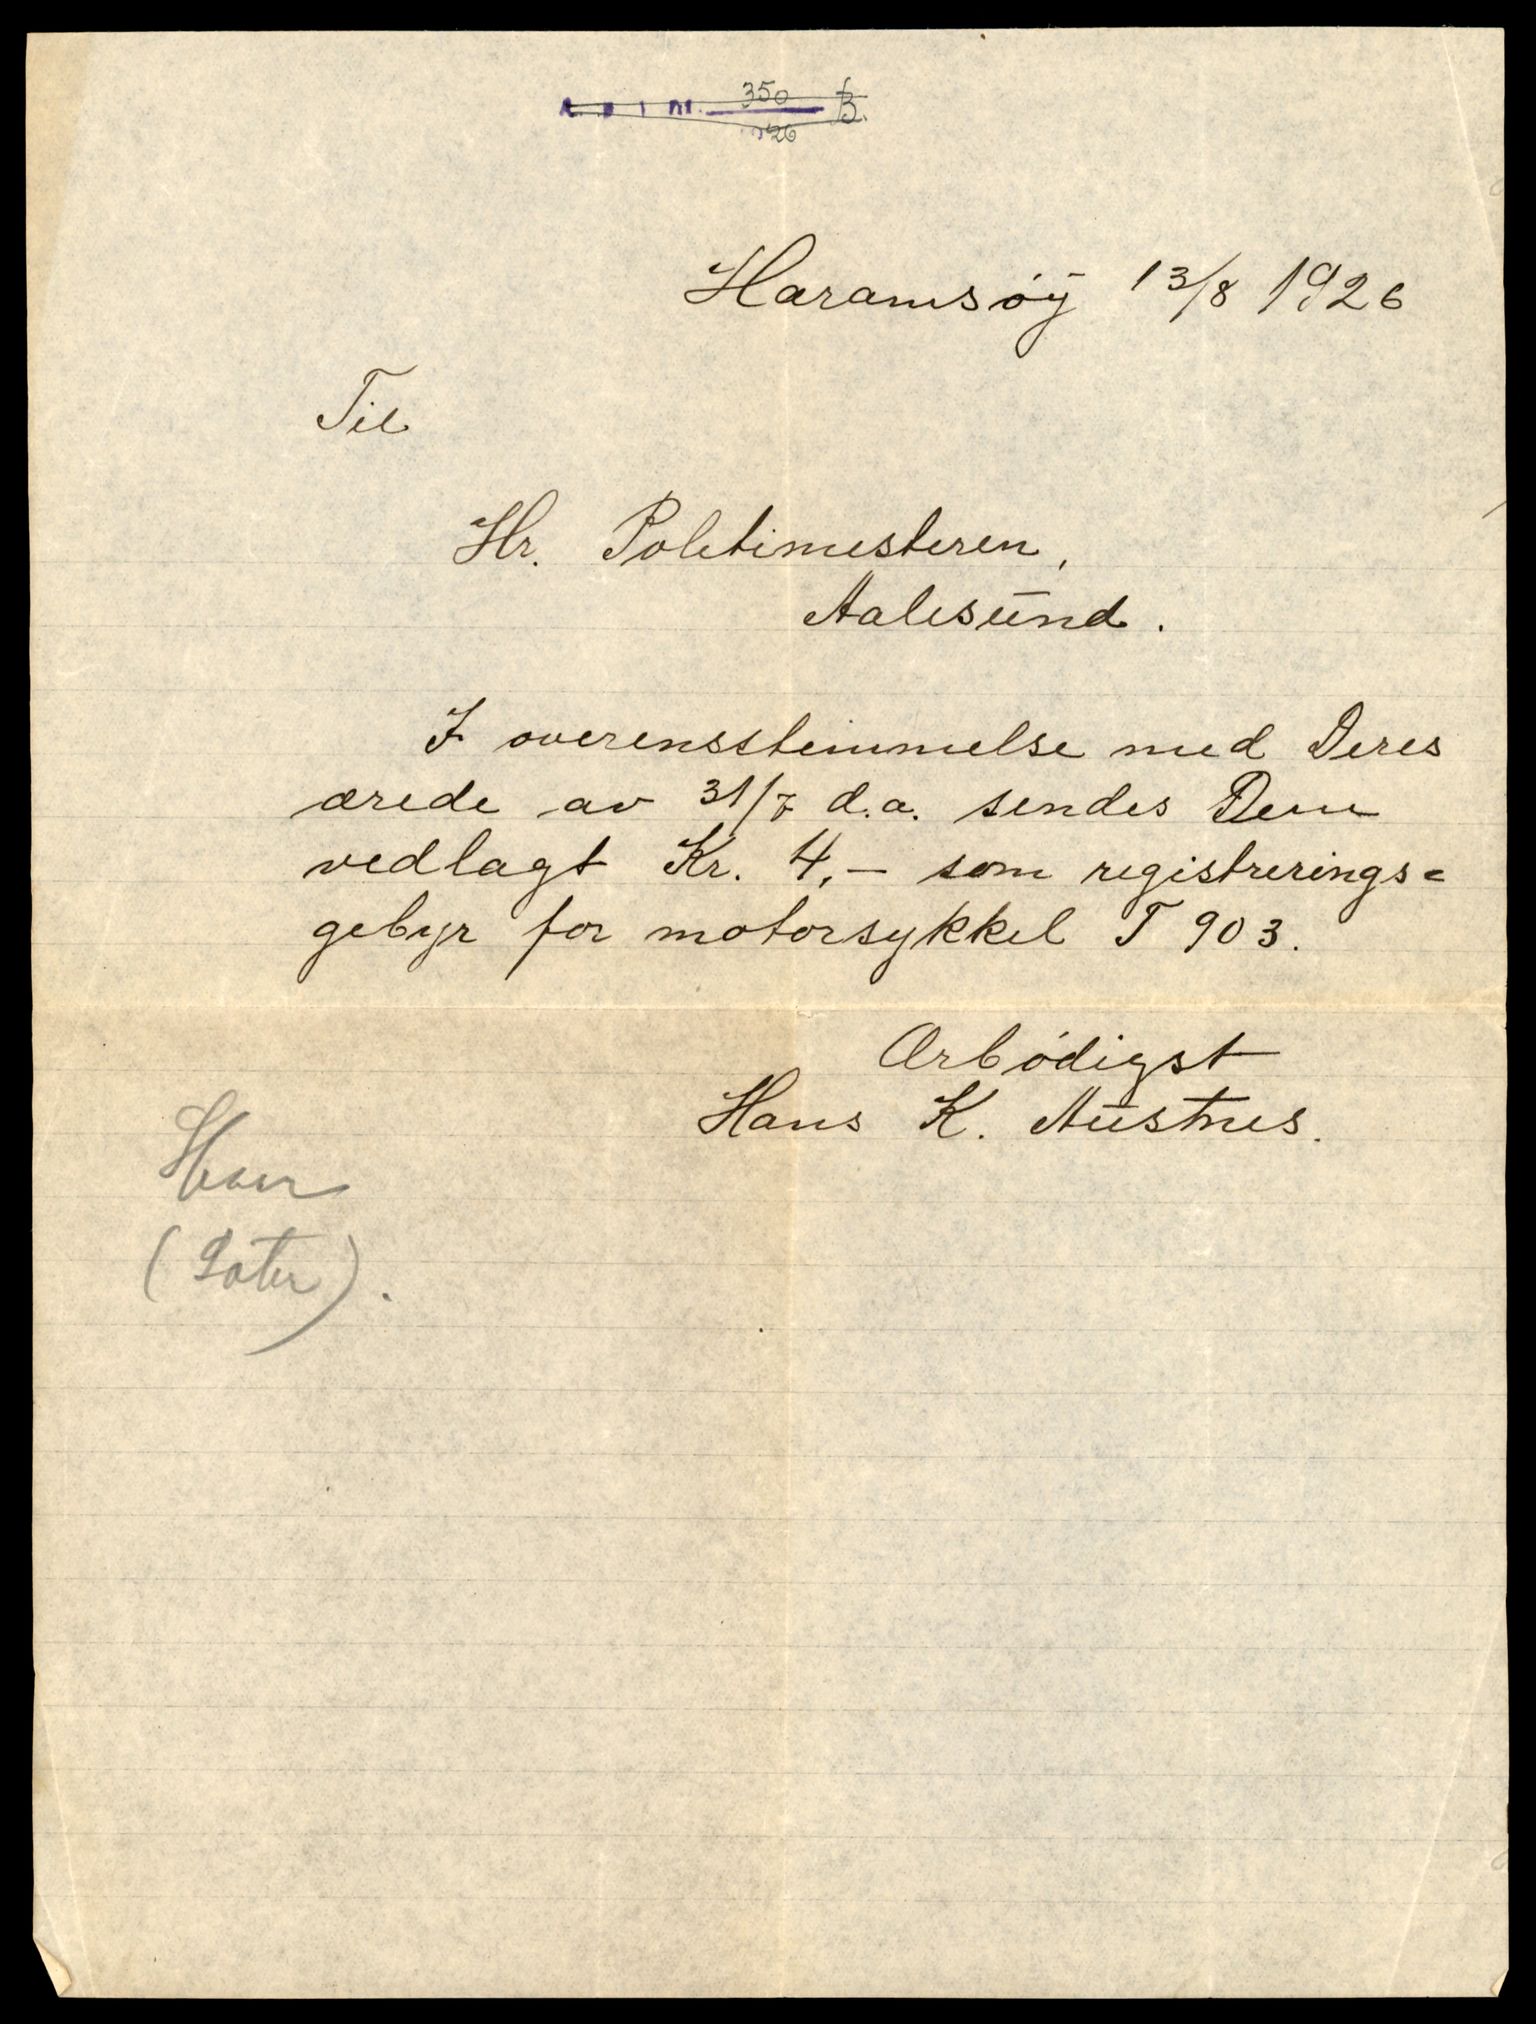 350
26
B.
Haramsöy 13/8 1926
Til
Hr. Politimesteren,
Aalesund.
I overensstemmelse med Deres
ærede av 31/7 d.a. sendes Dem
vedlagt Kr. 4,- som registrerings=
gebyr for motorsykkel T 903.
Ærbödigst
Hans K. Austnes.